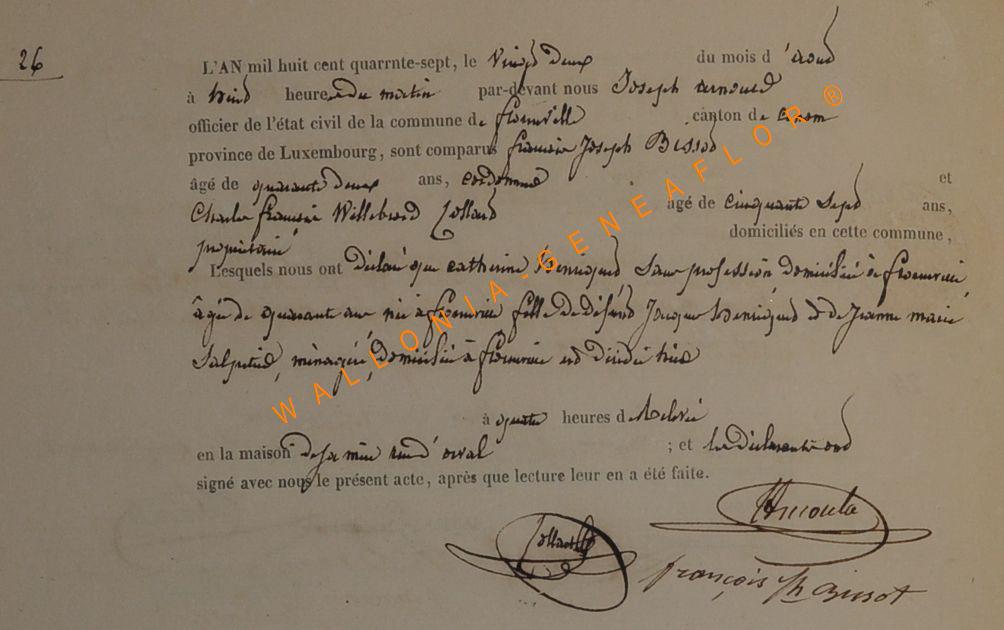 26
L'AN mil huit cent quarrnte-sept, le Vingt Deux du mois d'aout
à huit heures du matin par-devant nous Joseph arnould
officier de l'état civil de la commune de florenville canton de
province de Luxembourg, sont comparus francois Joseph Bissot
âgé de quarante deux ans, cordonnier et
Charles francois Willebrord Collard âgé de cinquante Sept ans,
propriétaire domiciliés en cette commune,
Lesquels nous ont Déclaré que catherine henriquet Sans profession domiciliée à florenville
âgée de quarante ans née à florenville fille de défunt Jacques henriquet et de Jeanne marie
ménagère, domiciliée à florenville est décédée hier
à quatre heures de relevée
en la maison de sa mère rue d'orval ; et les déclarants ont
signé avec nous le présent acte, après que lecture leur en a été faite.
Arnould
Collard
françois Jh Bissot
WALLONIA-GENEAFLOR®